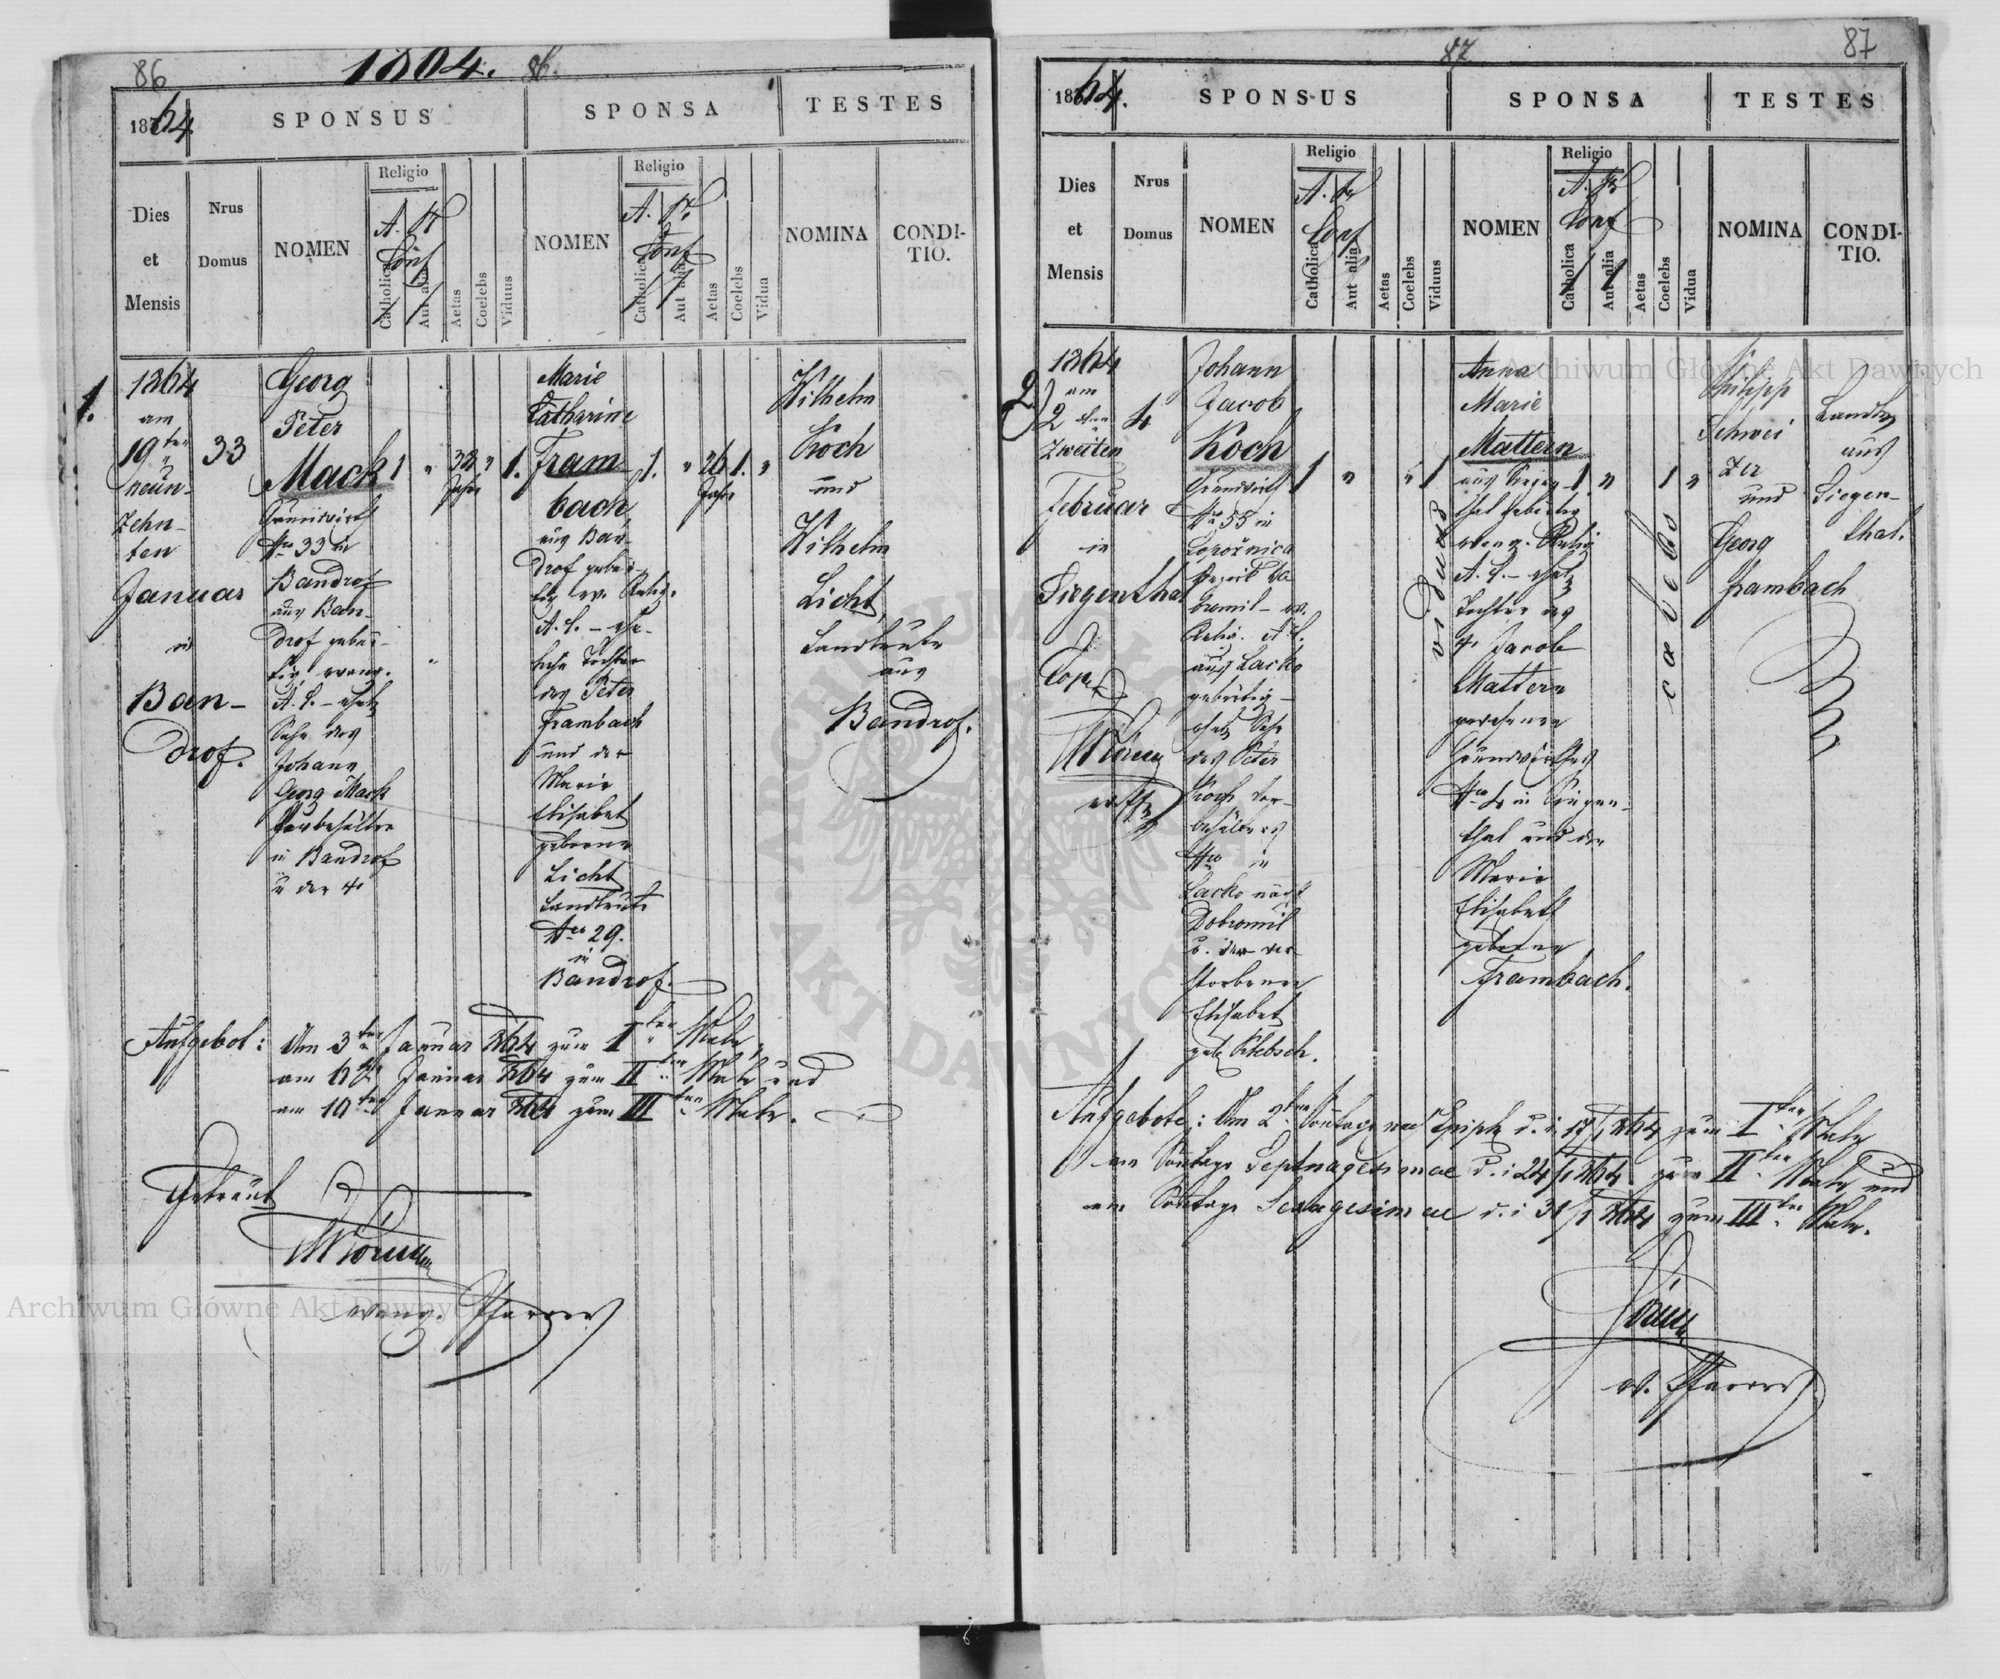 86
1864.
86.
1864
SPONSUS
SPONSA
TESTES
Dies
et
Mensis
Nrus
Domus
NOMEN
Religio
A. B.
Conf
Catholica
Aut alia
Aetas
Coelebs
Viduus
NOMEN
Religio
A. B.
Conf
Catholica
Aut alia
Aetas
Coelebs
Vidua
NOMINA
CONDI-
TIO.
1.
1864
am
19ten
neun-
zehn-
ten
Januar
in
Ban-
drof.
33
Georg
Peter
Mack
Grundwirth
Nro 33 in
Bandrof
aus Ban-
drof gebür-
tig, evang.
A. C. – ehel.
Sohn des
Johann
Georg Mack
in Bandrof
u der
1
"
32
Jahr
"
1.
Marie
Catharine
Fram
bach,
aus Ban-
drof gebür-
tig ev. Relig.
A. C. – ehe-
liche Tochter
des Peter
Frambach
und der
Marie
Elisabet
geborne
Licht
Landleute
Nro 29.
in
Bandrof.
1.
"
26
Jahr
1.
"
Wilhelm
Koch
und
Wilhelm
Licht,
Landleute
aus
Bandrof.
Aufgebot: Am 3ten Januar 1864 zum Iten Male,
am Januar 1864 zum IIten Male und
am Januar 1864 zum IIIten Male.
Getraut
evang. Pfarrer
87
87
1864.
SPONSUS
SPONSA
TESTES
Dies
et
Mensis
Nrus
Domus
NOMEN
Religio
A. B.
Conf
Catholica
Aut alia
Aetas
Coelebs
Viduus
NOMEN
Religio
A. B.
Conf
Catholica
Aut alia
Aetas
Coelebs
Vidua
NOMINA
CONDI-
TIO.
2)
1864
am
2ten
zweiten
Februar
in
Siegenthal
Cop.
4
Johann
Jacob
Koch
Grundwirth
Nro 55 in
Lopošnica
Bezirk Do
bromil – ev.
Relig. A. C.
aus Lacko
gebürtig –
ehel. Sohn
des Peter
Koch Vor-
behälters
Nro in
Lacko nächst
Dobromil
u. der ver-
storbenen
Elisabet
geb. Klebsch.
1
"
"
1
viduus
Anna
Marie
Mattern
aus Siegen-
thal gebürtig
evang. Relig
A. C. – ehel.
Tochter des
Jacob
Mattern
gewesenen
Grundwirthes
Nro 4 in Siegen-
thal und der
Marie
Elisabeth
geborne
Frambach.
1.
"
1
"
caelebs
Philipp
Schwei
zer
und
Georg
Frambach
Landw.
aus
Siegen-
thal.
Aufgebote: Am 2ten Sontage nach Epiph. d. i. 17/1 1864 zum Iten Male
am Sontage Septuagesimae d. i. 24/1 1864 zum IIten Male und
am Sontage Sexagesimae d. i. 31/1 1864 zum IIIten Male.
ev. Pfarrer
Archiwum Główne Akt Dawnych
Archiwum Główne Akt Dawnych
ARCHIWUM GŁÓWNE AKT DAWNYCH